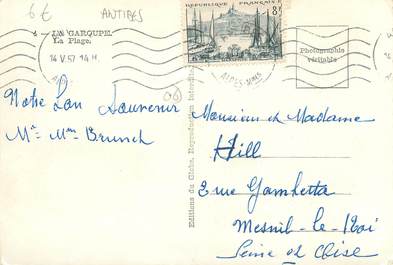 6€
ANTIBES
4 - LA GAROUPE
La Plage.
REPUBLIQUE FRANÇAISE
8F
14 V. 57 14 H.
ALPES-MMES
Photographie
véritable
Notre bon Souvenir
Mr Mme Brunch
06
Editions du Globe. Reproduction interdite.
Monsieur et Madame
Hill
2 rue Gambetta
Mesnil-le-Roi
Seine et Oise